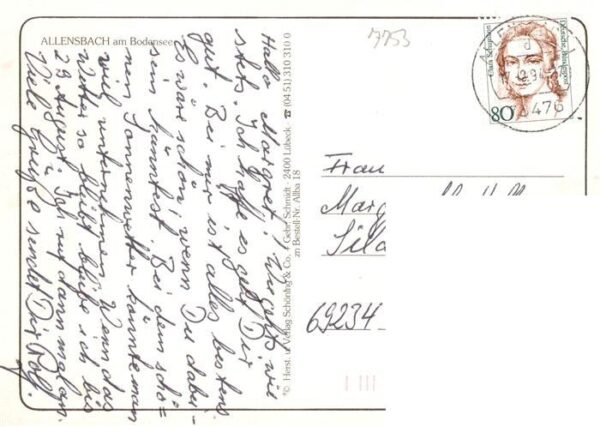 ALLENSBACH am Bodensee
Hallo Margret! Wie geht's, wie
stets. Ich hoffe es geht Dir
gut. Bei mir ist alles bestens.
Es wär schön, wenn Du dabei-
sein könntest. Bei dem schö=
nen Sonnenwetter könnte man
viel unternehmen. Wenn das
Wetter so bleibt bleibe ich bis
29. August. Ich ruf dann mal an.
Viele Grüße sendet Dir Rolf.
© Herst. u. Verlag Schöning & Co. + Gebr. Schmidt · 2400 Lübeck · ☎ (04 51) 310 310 0
zu Bestell-Nr. Allba 18
7753
Clara Schumann
Deutsche Bundespost
80
Frau
Marg
69234